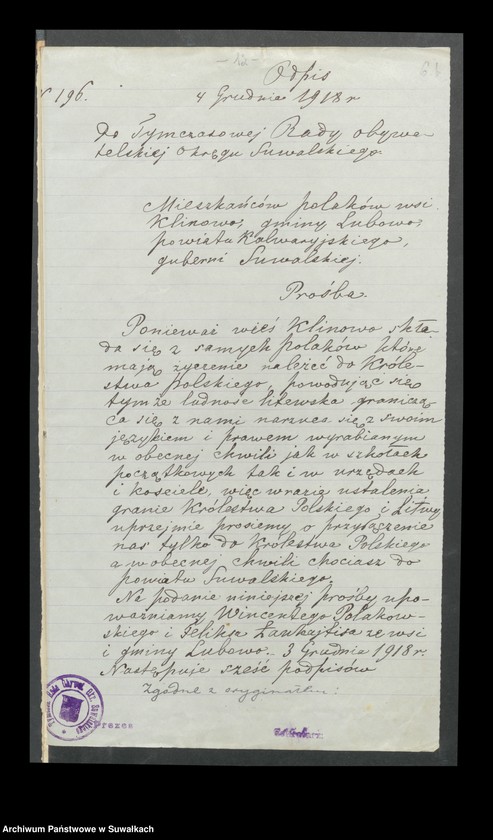 Odpis
№ 196.
4 Grudnia 1918 r
do Tymczasowej Rady obywa-
telskiej Okręgu Suwalskiego.
Mieszkańców polaków wsi
Klinowo, gminy Lubowo,
powiatu Kalwaryjskiego,
guberni Suwalskiej.
Prośba.
Ponieważ wieś Klinowo skła-
da się z samych polaków które
mają życzenie należeć do Króle-
stwa Polskiego, powodując się
tym że ludnosć litewska granicza
ca się z nami narzuca się z swoim
językiem i prawem wyrabianym
w obecnej chwili jak w szkołach
początkowych tak i w urzędach
i kościele, więc wrazie ustalenia
granic Królestwa Polskiego i Litwy
uprzejmie prosiemy, o przyłączenie
nas tylko do Królestwa Polskiego
a w obecnej chwili chociasz do
powiatu Suwalskiego.
Na podanie niniejszej prośby upo-
ważniamy Wincentego Polakow-
skiego i Feliksa Łaukajtisa ze wsi
i gminy Lubowo. 3 Grudnia 1918 r.
Następuje sześć podpisów
Zgodne z oryginałem:
Prezes
Sekretarz:
Archiwum Państwowe w Suwałkach